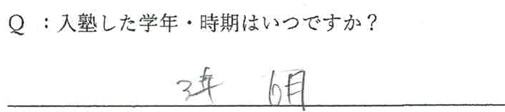 Q ：入塾した学年・時期はいつですか？
3年 6月